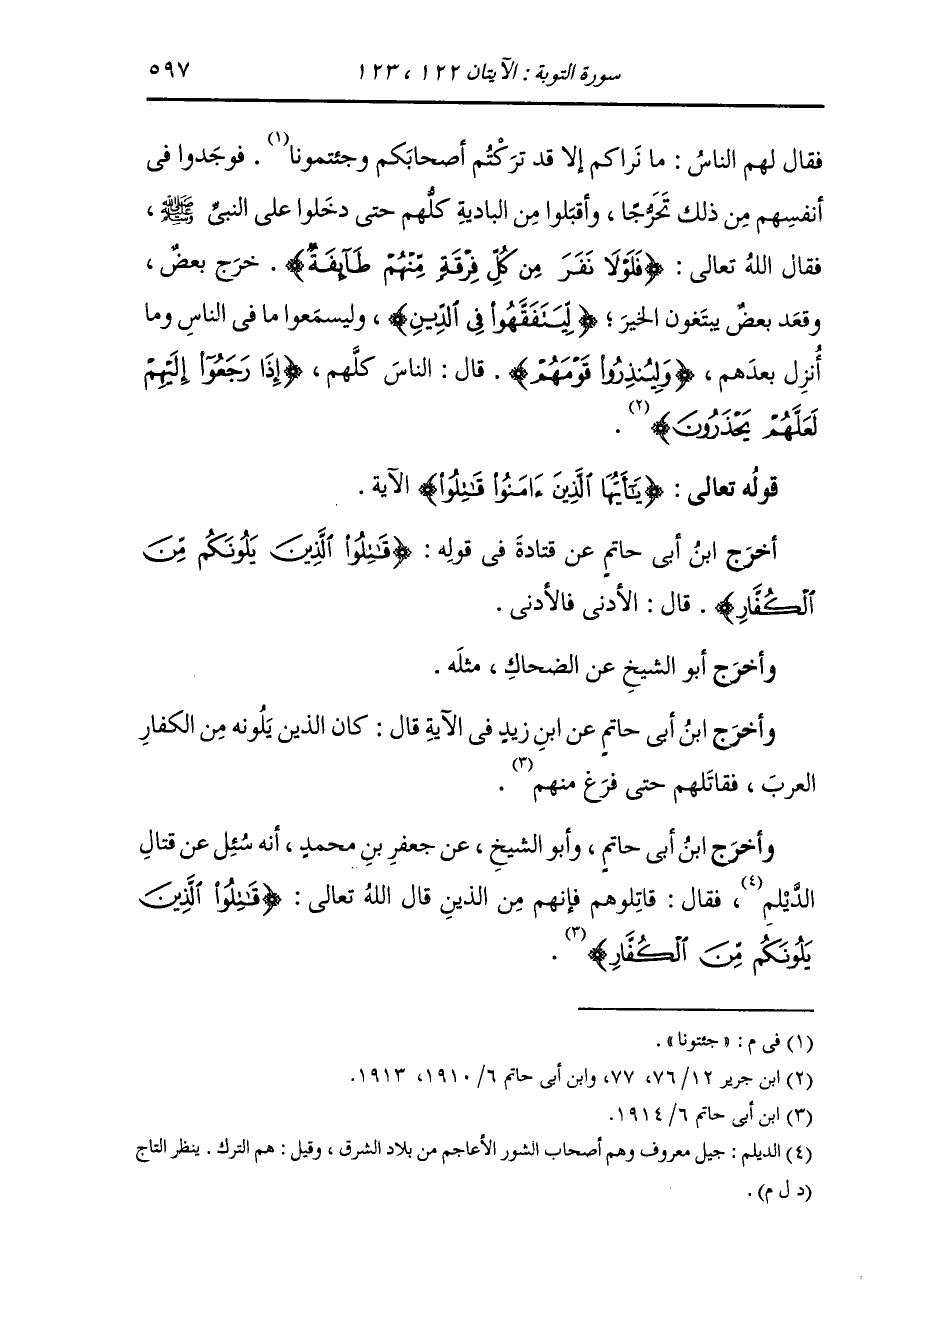 سورة التوبة : الآيتان ١٢٢ ، ١٢٣ ٥٩٧
فقال لهم الناسُ : ما نَراكم إلا قد تركْتُم أصحابَكم وجئتمونا(١) . فوجَدوا فى
أنفسِهم مِن ذلك تَحَرُّجًا ، وأقبَلوا مِن الباديةِ كلُّهم حتى دخَلوا على النبىِّ ﷺ ،
فقال اللهُ تعالى : ﴿فَلَوْلَا نَفَرَ مِن كُلِّ فِرْقَةٍ مِّنْهُمْ طَآئِفَةٌ﴾ . خرَج بعضٌ ،
وقعَد بعضٌ يبتَغون الخيرَ ؛ ﴿لِّيَتَفَقَّهُوا۟ فِى ٱلدِّينِ﴾ ، وليسمَعوا ما فى الناسِ وما
أُنزِل بعدَهم ، ﴿وَلِيُنذِرُوا۟ قَوْمَهُمْ﴾ . قال : الناسَ كلَّهم ، ﴿إِذَا رَجَعُوٓا۟ إِلَيْهِمْ
لَعَلَّهُمْ يَحْذَرُونَ﴾(٢) .
قولُه تعالى : ﴿يَـٰٓأَيُّهَا ٱلَّذِينَ ءَامَنُوا۟ قَـٰتِلُوا۟﴾ الآية .
أخرَج ابنُ أبى حاتمٍ عن قتادةَ فى قولِه : ﴿قَـٰتِلُوا۟ ٱلَّذِينَ يَلُونَكُم مِّنَ
ٱلْكُفَّارِ﴾ . قال : الأدنى فالأدنى .
وأخرَج أبو الشيخِ عن الضحاكِ ، مثلَه .
وأخرَج ابنُ أبى حاتمٍ عن ابنِ زيدٍ فى الآيةِ قال : كان الذين يَلُونه مِن الكفارِ
العربَ ، فقاتَلهم حتى فرَغ منهم(٣) .
وأخرَج ابنُ أبى حاتمٍ ، وأبو الشيخِ ، عن جعفرِ بنِ محمدٍ ، أنه سُئِل عن قتالِ
الدَّيْلمِ(٤) ، فقال : قاتِلوهم فإنهم مِن الذين قال اللهُ تعالى : ﴿قَـٰتِلُوا۟ ٱلَّذِينَ
يَلُونَكُم مِّنَ ٱلْكُفَّارِ﴾(٣) .
(١) فى م : « جئتونا » .
(٢) ابن جرير ١٢/ ٧٦، ٧٧، وابن أبى حاتم ٦/ ١٩١٠، ١٩١٣.
(٣) ابن أبى حاتم ٦/ ١٩١٤.
(٤) الديلم : جيل معروف وهم أصحاب الشور الأعاجم من بلاد الشرق ، وقيل : هم الترك . ينظر التاج
(د ل م) .